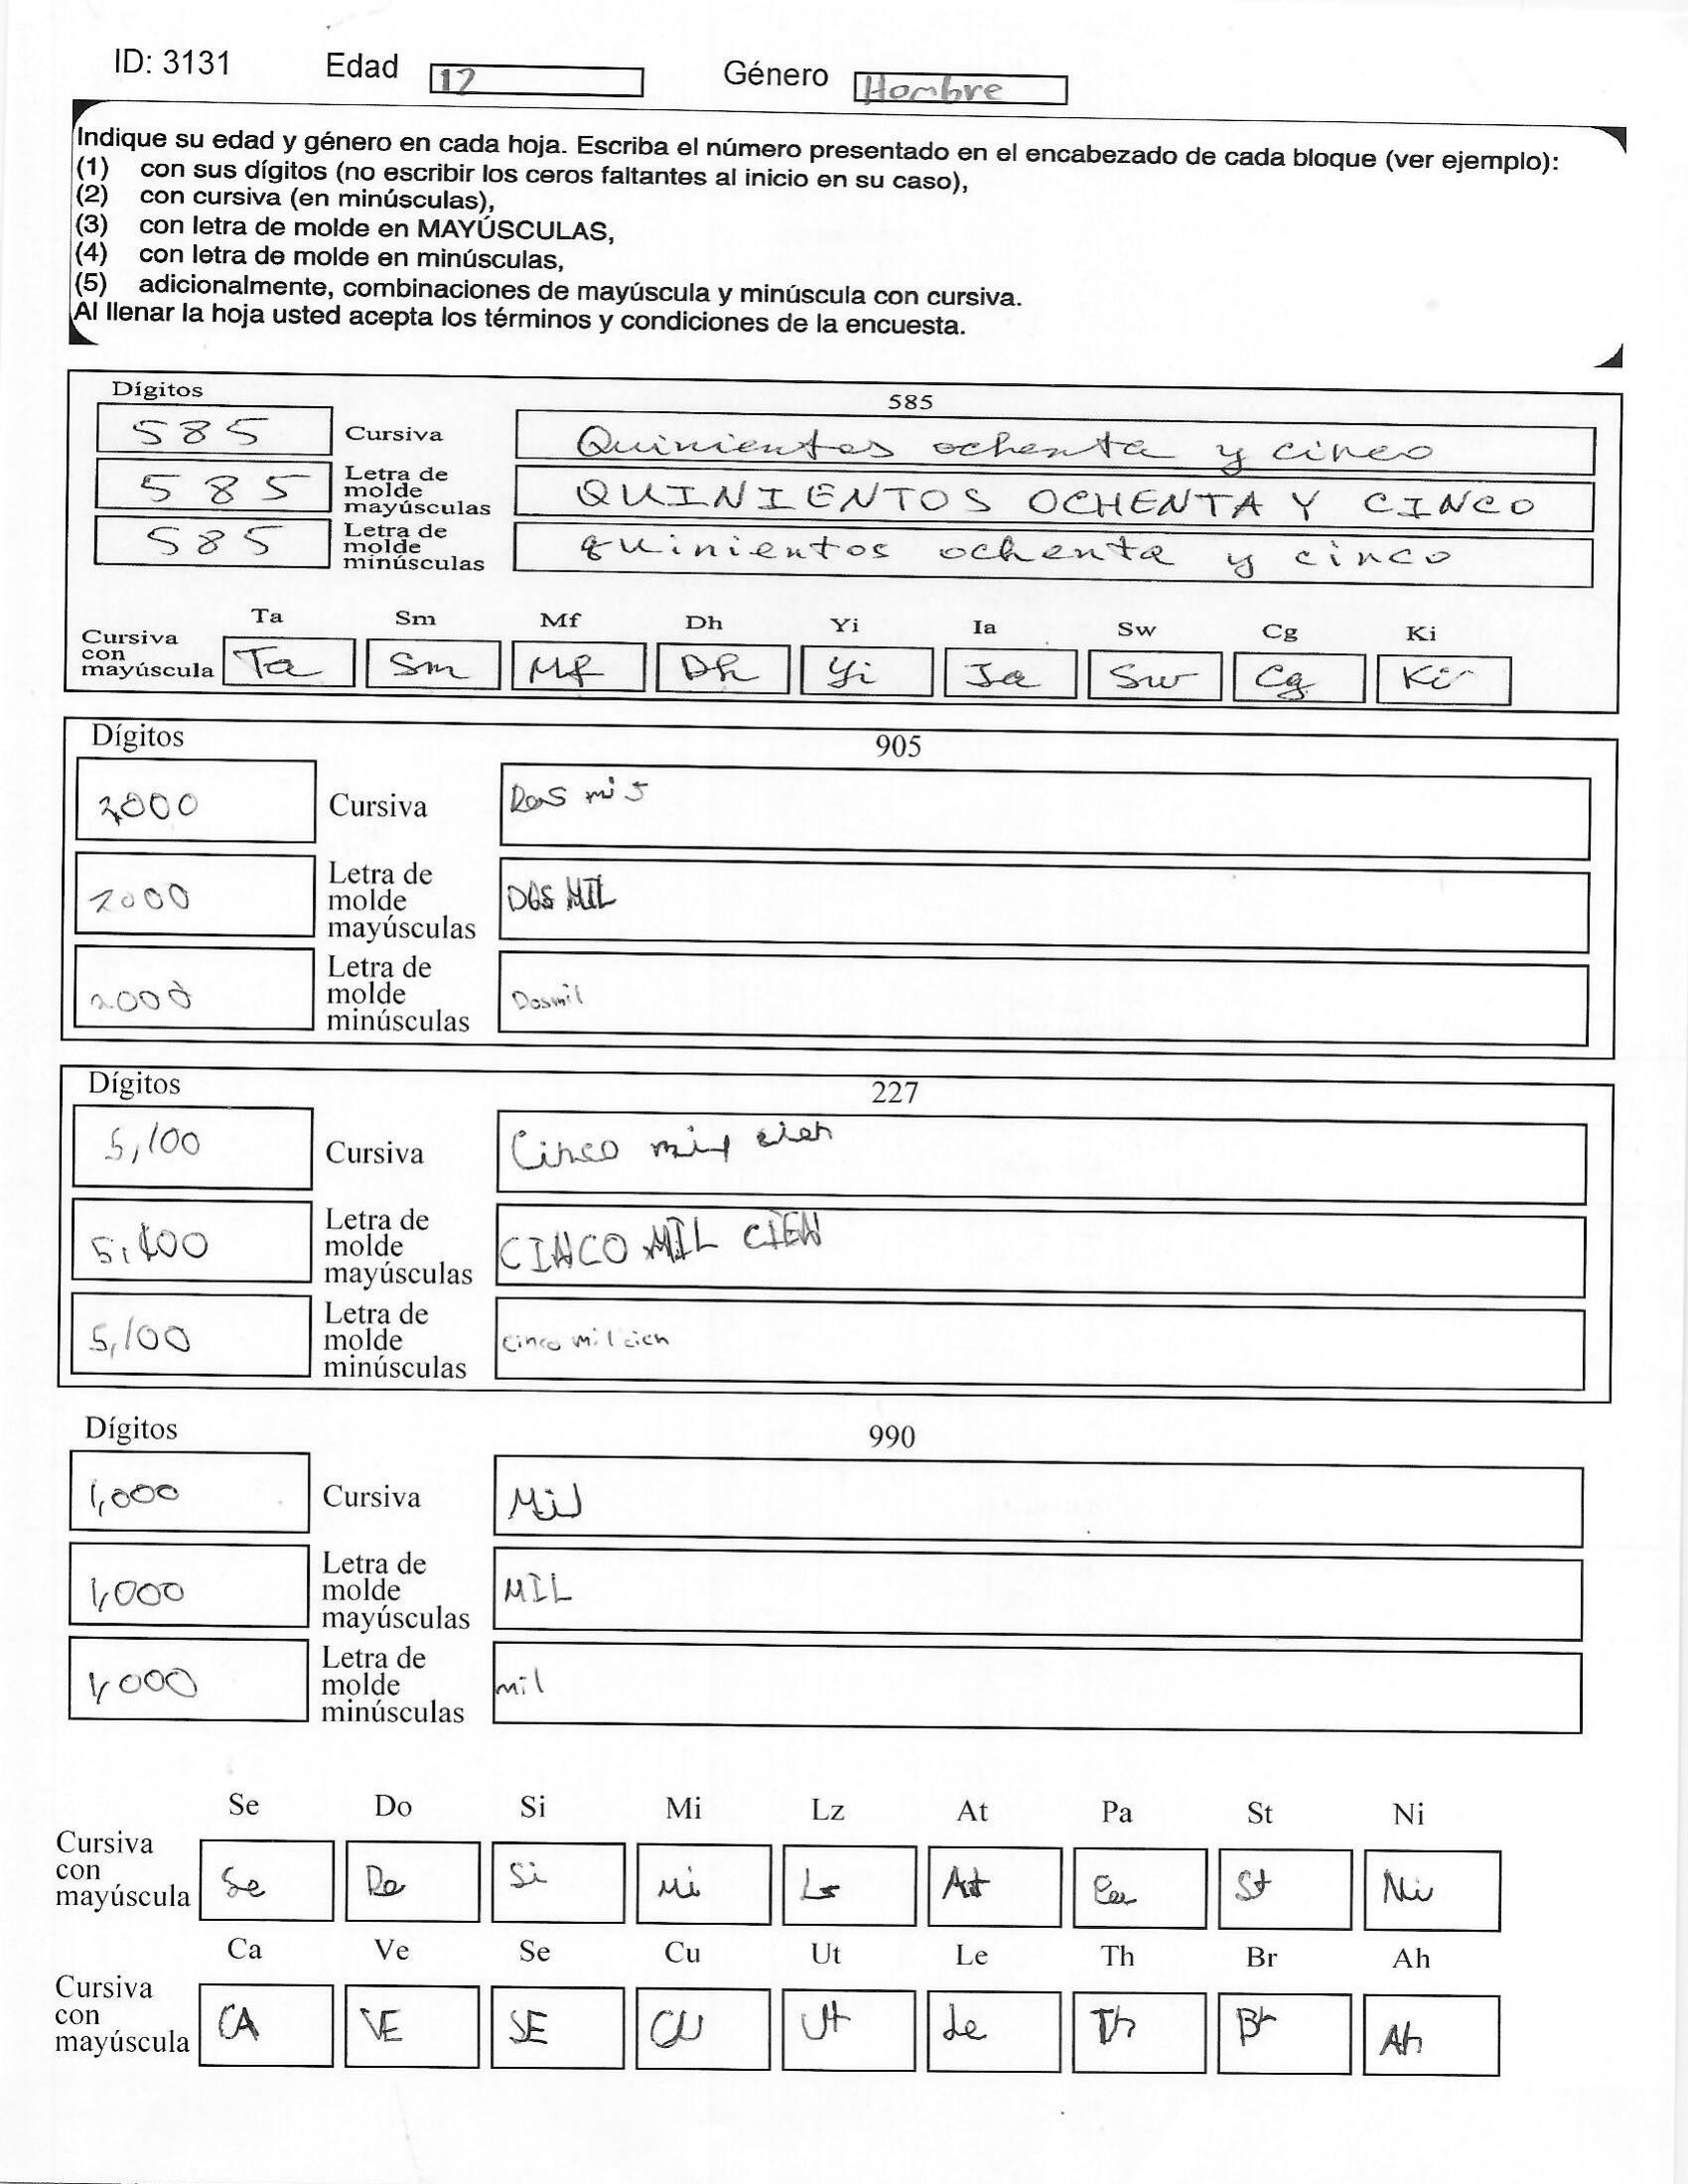 ID: 3131 Edad 12 Género Hombre
Indique su edad y género en cada hoja. Escriba el número presentado en el encabezado de cada bloque (ver ejemplo):
(1) con sus dígitos (no escribir los ceros faltantes al inicio en su caso),
(2) con cursiva (en minúsculas),
(3) con letra de molde en MAYÚSCULAS,
(4) con letra de molde en minúsculas,
(5) adicionalmente, combinaciones de mayúscula y minúscula con cursiva.
Al llenar la hoja usted acepta los términos y condiciones de la encuesta.
Dígitos 585
585 Cursiva Quinientos ochenta y cinco
585 Letra de molde mayúsculas QUINIENTOS OCHENTA Y CINCO
585 Letra de molde minúsculas quinientos ochenta y cinco
Ta Sm Mf Dh Yi Ia Sw Cg Ki
Cursiva con mayúscula Ta Sm Mf Dh Yi Ia Sw Cg Ki
Dígitos 905
2000 Cursiva Dos mil
2000 Letra de molde mayúsculas DOS MIL
2000 Letra de molde minúsculas Dosmil
Dígitos 227
5,100 Cursiva Cinco mil cien
5,100 Letra de molde mayúsculas CINCO MIL CIEN
5,100 Letra de molde minúsculas cinco mil cien
Dígitos 990
1,000 Cursiva Mil
1,000 Letra de molde mayúsculas MIL
1,000 Letra de molde minúsculas mil
Se Do Si Mi Lz At Pa St Ni
Cursiva con mayúscula Se Do Si Mi Lz At Pa St Ni
Ca Ve Se Cu Ut Le Th Br Ah
Cursiva con mayúscula CA VE SE CU Ut Le Th Br Ah